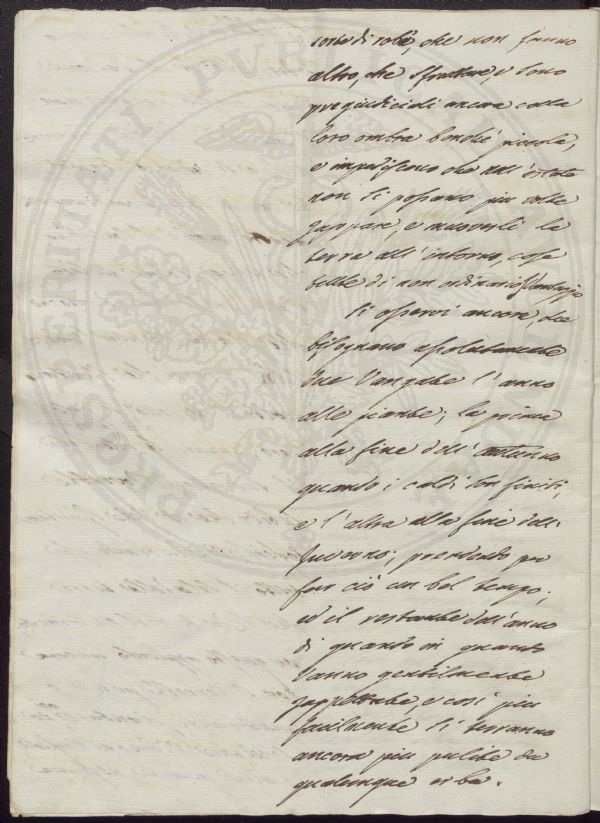 sorte di robe, che non fanno
altro, che sfruttare, e sono
pregiudiciali ancora colla
loro ombra benchè piccola,
e impediscono che nell'estate
non si possano piu volte
zappare, e muoverli la
terra all'intorno, cose
tutte di non ordinario Vantaggio
Si osservi ancora, che
bisognano assolutamente
due Vangate l'anno
alle piante; la prima
alla fine dell'autunno
quando i caldi son finiti,
e l'altra alla fine dell'
Inverno; prendendo per
far ciò un bel tempo;
ed il restante dell'anno
di quando in quando
Vanno gentilmente
zappettate, e così piu
facilmente si terranno
ancora piu pulite da
qualunque erba.
PROSPERITATI PUBLICAE AUGENDAE